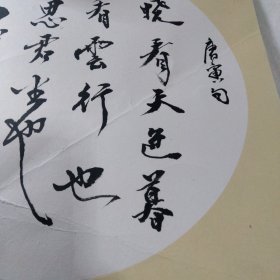 唐寅句
晓看天色暮
看雲行也
思君坐也